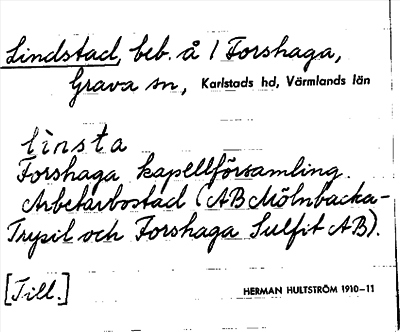 Lindstad, beb. å 1 Forshaga,
Grava sn, Karlstads hd, Värmlands län
lìnsta
Forshaga kapellförsamling.
Arbetarbostad (AB Mölnbacka-
Trysil och Forshaga Sulfit AB).
[Till.]
HERMAN HULTSTRÖM 1910-11